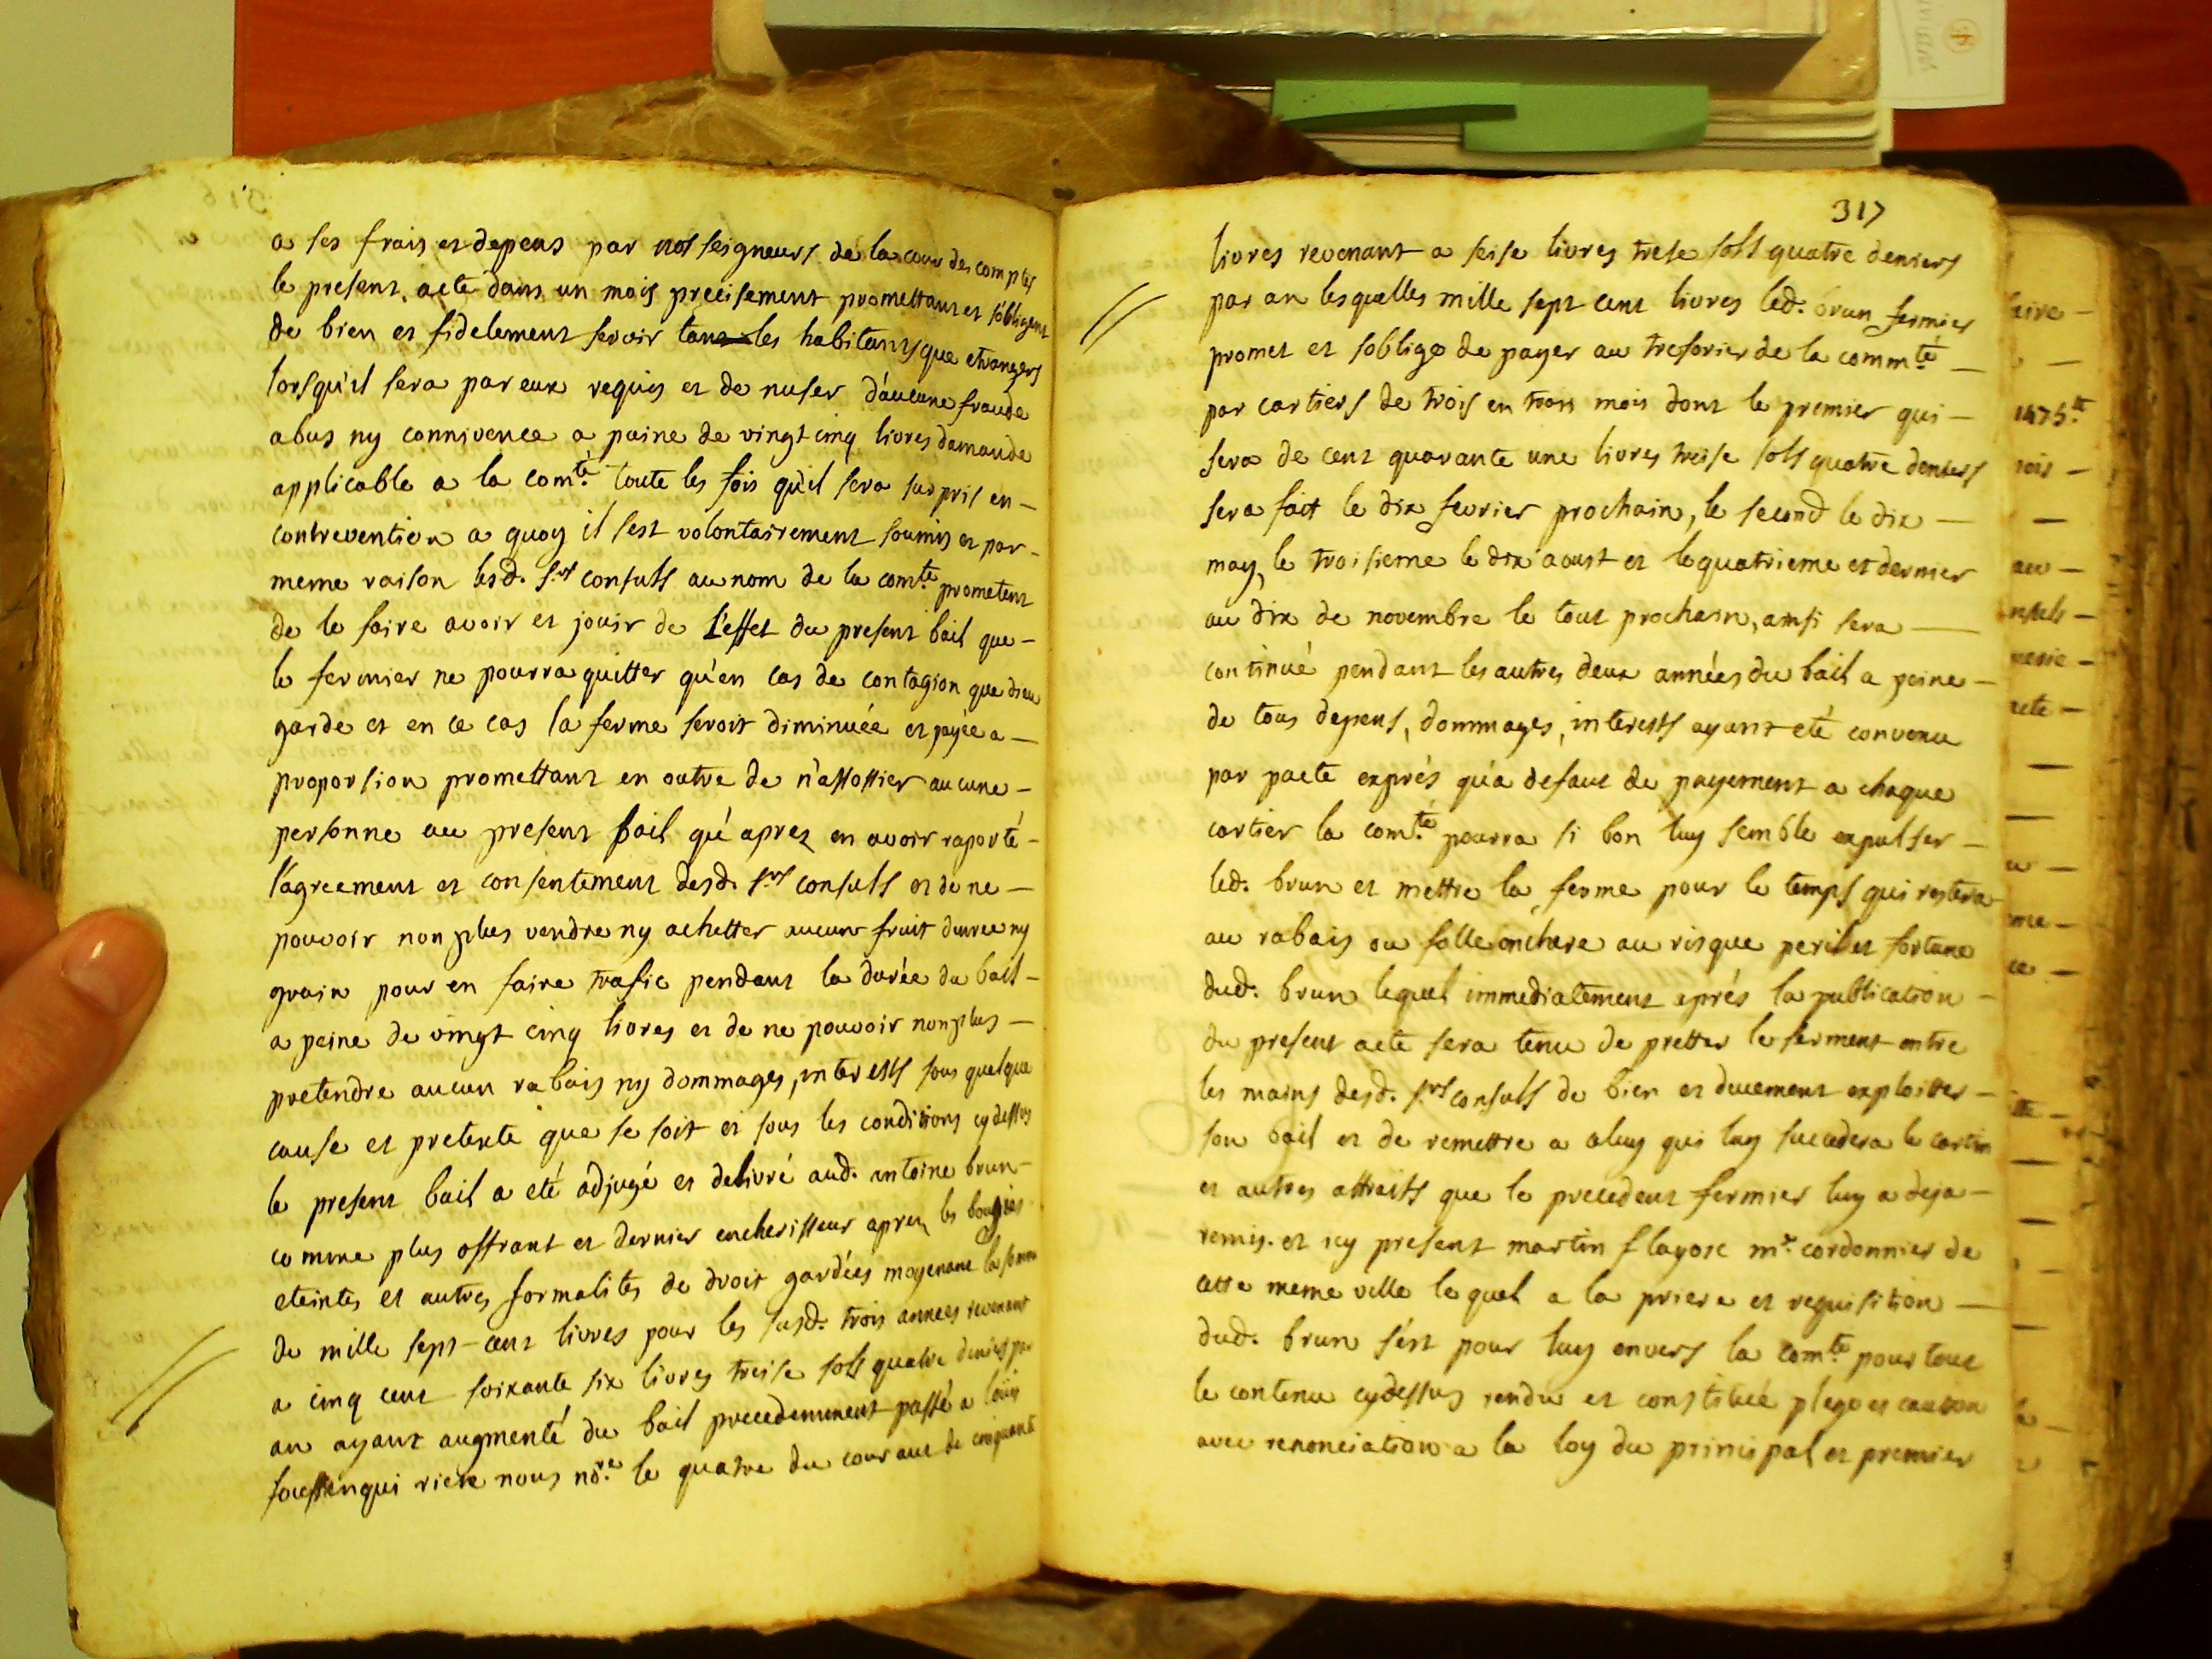 a ses frais et depens par nosseigneurs de la cour des comptes
le present acte dans un mois precisement promettant et s'obligent
de bien et fidelement servir tant les habitants que etrangers
lorsqu'il sera par eux requis et de nuser d'aucune fraude
abus ny connivence a paine de vingt cinq livres damande
applicable a la com.té toute les fois qu'il sera surpris en –
contrevention a quoy il sest volontairement soumis et par –
meme raison lesd. s.rs consuls au nom de la com.té prometent
de le faire avoir et jouir de l'effet du present bail que –
le fermier ne pourra quitter qu'en cas de contagion que dieu
garde et en ce cas la ferme seroit diminuée et payée a –
proporsion promettant en outre de n'assossier aucune –
personne au present bail qu'apres en avoir raporté –
l'agreement et consentement desd. s.rs consuls et de ne –
pouvoir non plus vendre ny achetter aucun fruit danree ny
grain pour en faire trafic pendant la durée du bail –
a peine de vingt cinq livres et de ne pouvoir non plus –
pretendre aucun rabais ny dommages, interests sous quelque
cause et pretexte que se soit et sous les conditions cydessus
le present bail a eté adjugé et delivré aud. antoine brun –
comme plus offrant et dernier encherisseur apres les bougies
eteintes et autres formalités de droit gardées moyenant la somme
de mille sept cent livres pour les susd. trois années revenent
a cinq cent soixante six livres treise sols quatre deniers par
an ayant augmenté du bail precedemment passé a louis
qui riere nous no.re le quatre du courant de cinquante
317
livres revenant a seise livres trese sols quatre deniers
par an lesquelles mille sept cent livres led. brun fermier
promet et s'oblige de payer au tresorier de la comm.té –
par cartiers de trois en trois mois dont le premier qui –
sera de cent quarante une livres treise sols quatre deniers
sera fait le dix fevrier prochain, le second le dix –
may, le troisieme le dix aoust et le quatrieme et dernier
au dix de novembre le tout prochain, ainsi sera –
continué pendant les autres deux années du bail a peine –
de tous depens, dommages, interests ayant eté convenu
par pacte exprés qu'a defaut de payement a chaque
cartier la com.té pourra si bon luy semble expulser –
led. brun et mettre la ferme pour le temps qui restera
au rabais ou folle enchere au risque peril et fortune
dud. brun lequel immediatement aprés la publication –
du present acte sera tenu de pretter le serment entre
les mains desd. s.rs consuls de bien et duement exploitter –
son bail et de remettre a celuy qui luy succedera le cartin
et autres attraits que le precedent fermier luy a deja –
remis. et icy present martin flayosc m.e cordonnier de
cette meme ville lequel a la priere et requisition –
dud. brun s'est pour luy envers la com.té pour tout
le contenu cydessus rendu et constitué plege et caution
avec renonciation a la loy du principal et premier
aire –
1475.tt
nois –
au –
nsuls –